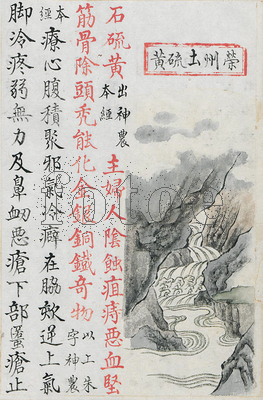 榮州土硫黃
石硫黃出神農本經主婦人陰蝕疽痔惡血堅
筋骨除頭禿能化金銀銅鐵奇物以上朱字神農
本經療心腹積聚邪氣冷癖在脇欬逆上氣
脚冷疼弱無力及鼻衂惡瘡下部䘌瘡止